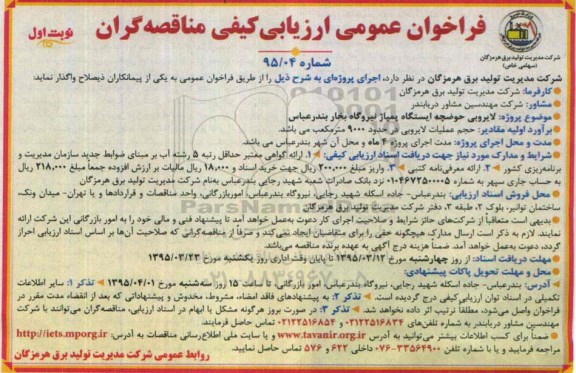 فراخوان عمومی ارزیابی کیفی مناقصه گران
نوبت اول
شماره ۹۵/۰۴
شرکت مدیریت تولید برق هرمزگان
(سهامی خاص)
شرکت مدیریت تولید برق هرمزگان در نظر دارد، اجرای پروژه‌ای به شرح ذیل را از طریق فراخوان عمومی به یکی از پیمانکاران ذیصلاح واگذار نماید:
کارفرما: شرکت مدیریت تولید برق هرمزگان
مشاور: شرکت مهندسین مشاور دریابندر
موضوع پروژه: لایروبی حوضچه ایستگاه پمپاژ نیروگاه بخار بندرعباس
برآورد اولیه مقادیر: حجم عملیات لایروبی در حدود ۹۰۰۰ مترمکعب می باشد.
مدت و محل اجرای پروژه: مدت اجرای پروژه ۴ ماه و محل آن شهر بندرعباس می باشد.
شرایط و مدارک مورد نیاز جهت دریافت اسناد ارزیابی کیفی: ۱. ارائه گواهی معتبر حداقل رتبه ۵ رشته آب بر مبنای ضوابط جدید سازمان مدیریت و
برنامه‌ریزی کشور ۲. ارائه معرفی‌نامه کتبی ۳. واریز مبلغ ۲۰۰,۰۰۰ ریال جهت خرید اسناد و ۱۸,۰۰۰ ریال مالیات بر ارزش افزوده جمعا مبلغ ۲۱۸,۰۰۰ ریال
به حساب جاری سپهر به شماره ۰۱۰۴۶۷۲۵۰۰۰۵ نزد بانک صادرات شعبه شهید رجایی بندرعباس به‌نام شرکت مدیریت تولید برق هرمزگان
محل فروش اسناد ارزیابی: بندرعباس- جاده اسکله شهید رجایی، نیروگاه بندرعباس، امور بازرگانی، واحد مناقصات و قراردادها و یا تهران- میدان ونک،
ساختمان توانیر، بلوک ۲، طبقه ۲، دفتر شرکت مدیریت تولید برق هرمزگان
بدیهی است متعاقباً از شرکت‌های حائز شرایط و صلاحیت اجرای کار دعوت به‌عمل خواهد آمد تا پیشنهاد فنی و مالی خود را به امور بازرگانی این شرکت ارائه
نمایند. لازم به ذکر است ارسال مدارک هیچگونه حقی را برای متقاضیان ایجاد نمی‌کند و صرفاً از مناقصه‌گرانی که صلاحیت آن‌ها بر اساس اسناد ارزیابی احراز
گردد، دعوت به‌عمل خواهد آمد. ضمناً هزینه درج آگهی به عهده برنده مناقصه می‌باشد.
مهلت دریافت اسناد: از روز چهارشنبه مورخ ۱۳۹۵/۰۳/۱۲ تا پایان وقت اداری روز یکشنبه مورخ ۱۳۹۵/۰۳/۲۳
محل و مهلت تحویل پاکات پیشنهادی:
آدرس: بندرعباس- جاده اسکله شهید رجایی، نیروگاه بندرعباس، امور بازرگانی، تا ساعت ۱۵ روز سه‌شنبه مورخ ۱۳۹۵/۰۴/۰۱ تذکر ۱: سایر اطلاعات
تکمیلی در اسناد توان ارزیابی کیفی درج گردیده است. تذکر ۲: به پیشنهادهای فاقد امضاء، مشروط، مخدوش و پیشنهاداتی که بعد از انقضاء مدت مقرر در
فراخوان واصل می‌شود، مطلقا ترتیب اثر داده نخواهد شد. تذکر ۳: در صورت بروز هرگونه مشکل یا ابهام در اسناد ارزیابی، مناقصه‌گران می‌توانند با شرکت
مهندسین مشاور دریابندر به شماره تلفن‌های ۰۲۱۲۲۵۱۶۸۳۴ و ۰۲۱۲۲۵۱۶۸۵۴ تماس حاصل فرمایند.
ضمنا برای کسب اطلاعات بیشتر می‌توانید به آدرس www.tavanir.org.ir و یا سایت ملی اطلاع‌رسانی مناقصات به آدرس: http://iets.mporg.ir
مراجعه فرمایید و یا با شماره تلفن ۳۳۵۶۴۹۰۰-۰۷۶ داخلی ۶۲۲ و ۵۷۶ تماس حاصل نمایید.
روابط عمومی شرکت مدیریت تولید برق هرمزگان